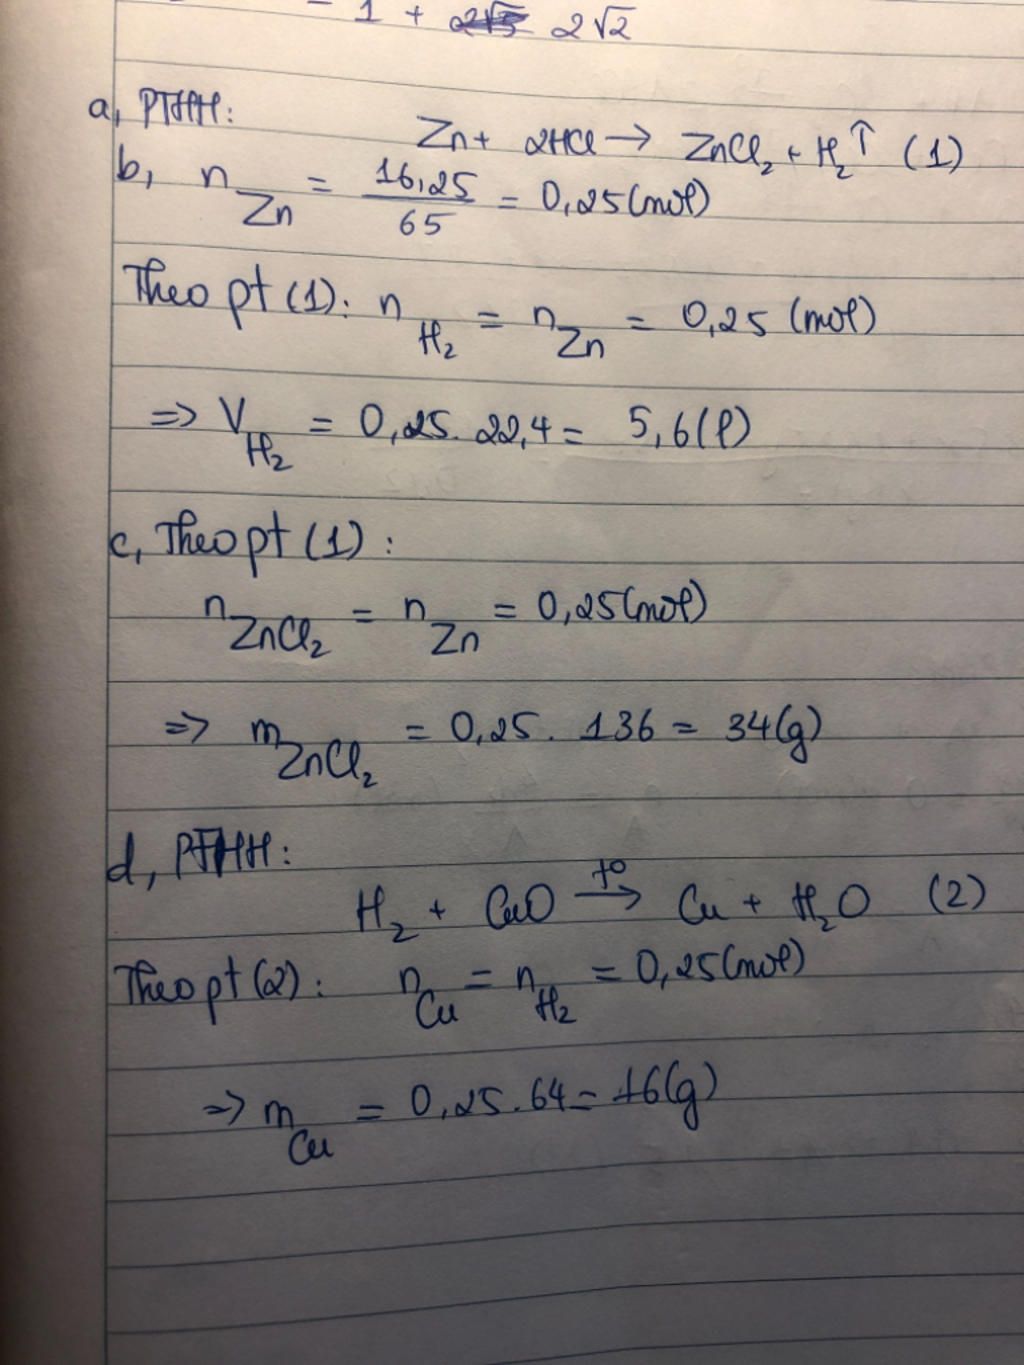 = 1 + 2√2
a, PTHH:
Zn + 2HCl → ZnCl₂ + H₂↑ (1)
b, n_Zn = 16,25/65 = 0,25(mol)
Theo pt (1): n_H₂ = n_Zn = 0,25 (mol)
=> V_H₂ = 0,25. 22,4 = 5,6(l)
c, Theo pt (1) :
n_ZnCl₂ = n_Zn = 0,25(mol)
=> m_ZnCl₂ = 0,25. 136 = 34(g)
d, PTHH:
H₂ + CuO →(t°) Cu + H₂O (2)
Theo pt (2): n_Cu = n_H₂ = 0,25(mol)
=> m_Cu = 0,25.64 = 16(g)